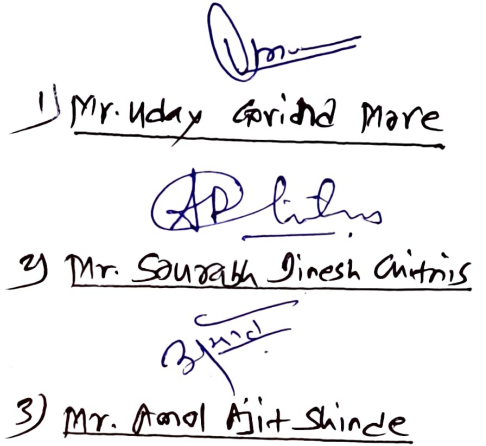 1) Mr. Uday Govind More
2) Mr. Sourabh Dinesh Chitnis
3) Mr. Amol Ajit Shinde